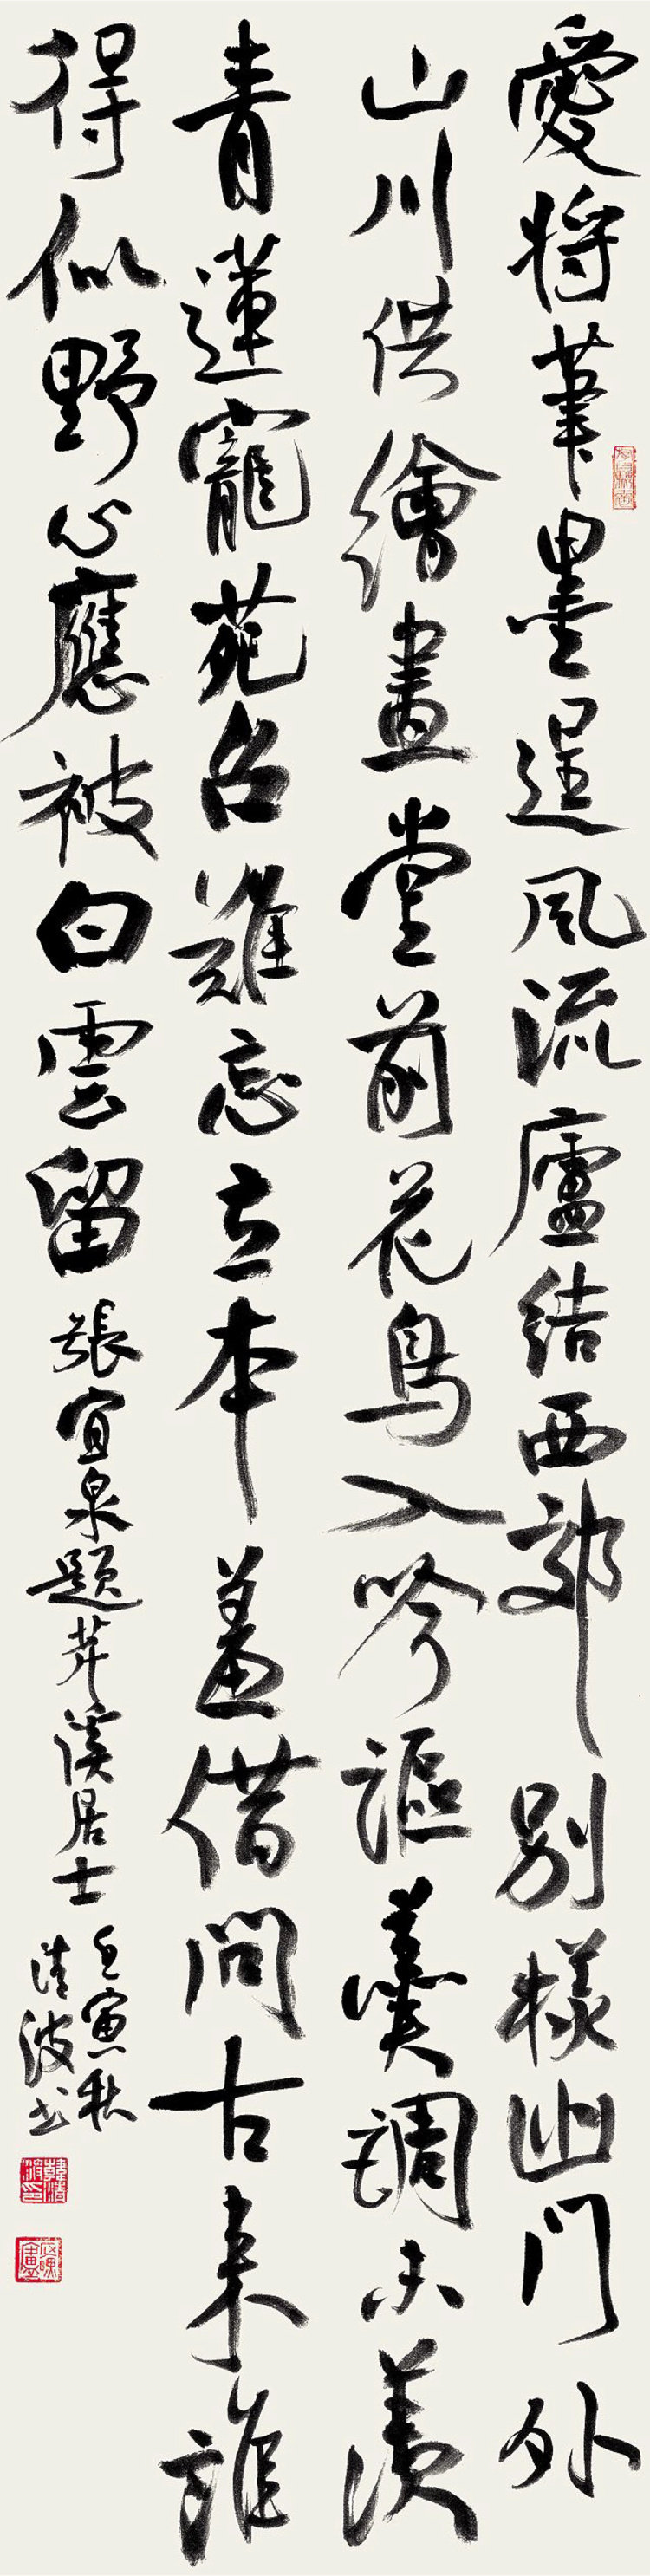 愛將筆墨逞風流廬結西郊別樣幽門外
山川供繪畫堂前花鳥入吟謳羹調未羨
青蓮寵苑召難忘立本羞借問古來誰
得似野心應被白雲留
張宜泉題芹溪居士
壬寅秋
清波书
韓清波印